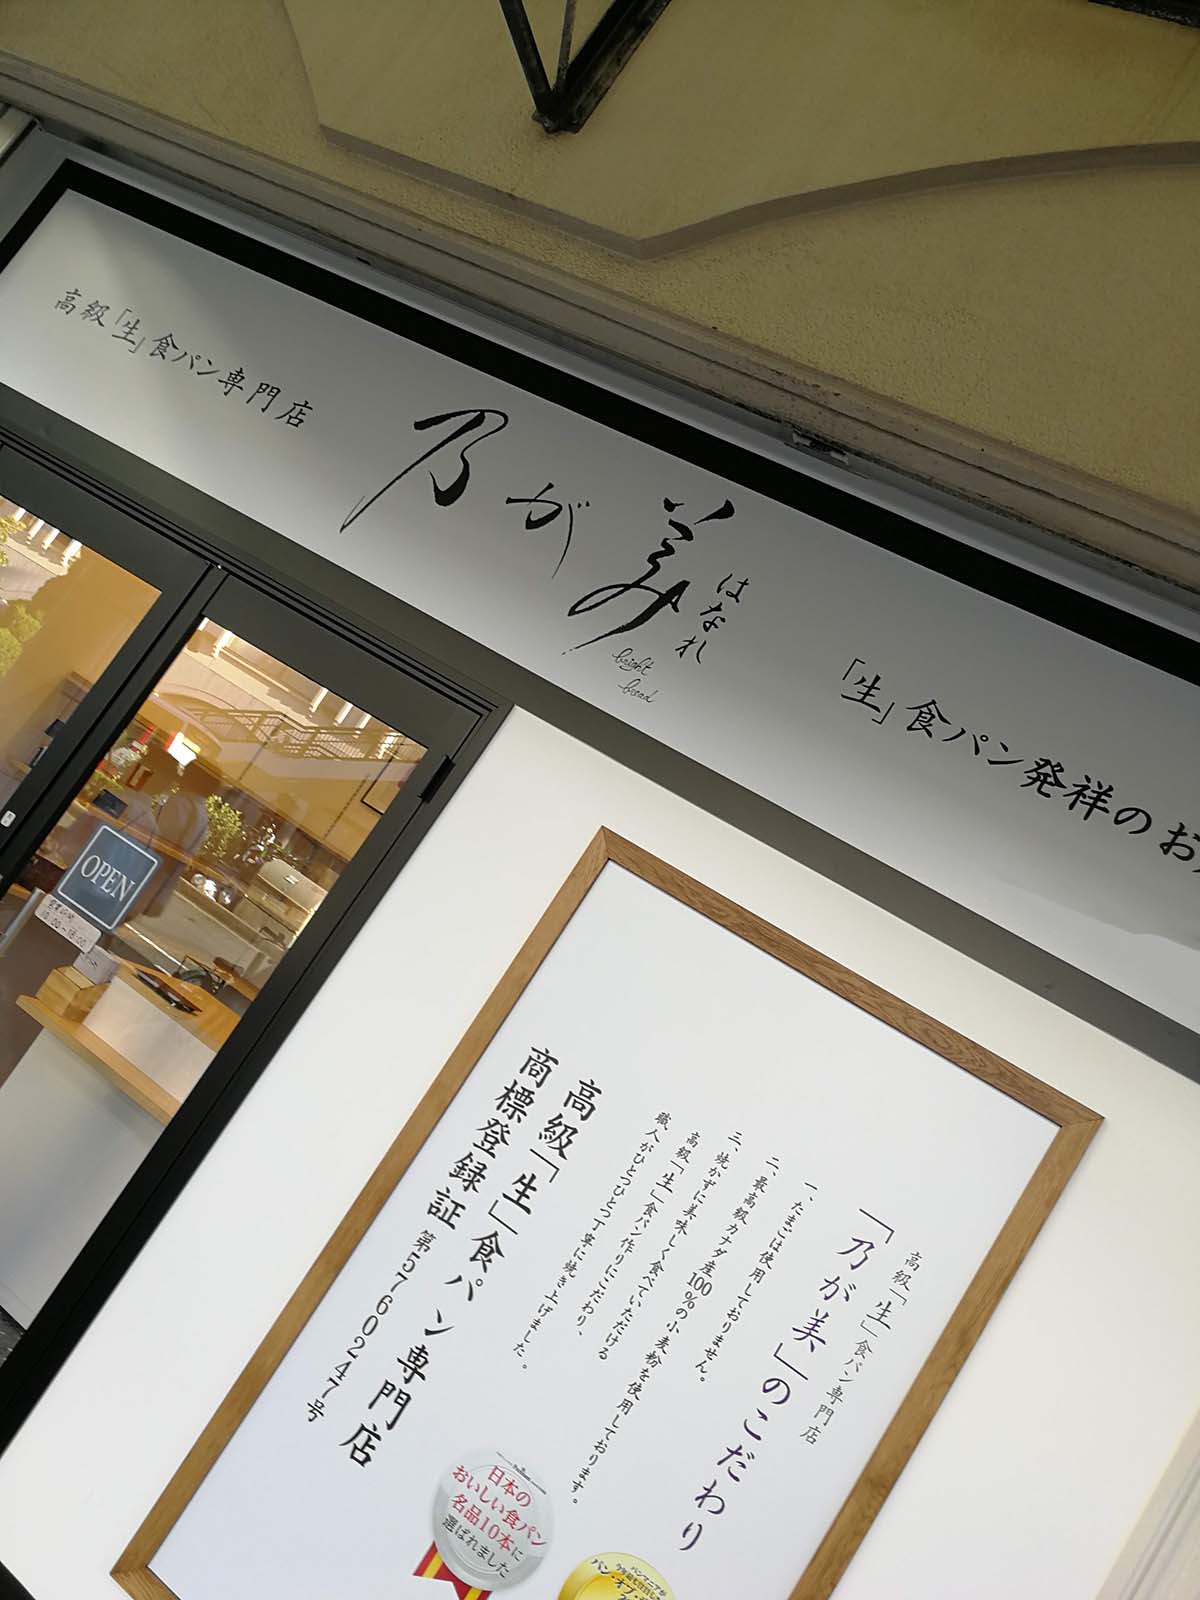 高級「生」食パン専門店
乃が美
はなれ
bright
bread
「生」食パン発祥のお
OPEN
営業時間
10:00~18:00
高級「生」食パン専門店
「乃が美」のこだわり
一、たまごは使用しておりません。
二、最高級カナダ産100%の小麦粉を使用しております。
三、焼かずに美味しく食べていただける
高級「生」食パン作りにこだわり、
職人がひとつひとつ丁寧に焼き上げました。
高級「生」食パン専門店
商標登録証 第5760247号
日本の
おいしい食パン
名品10本に
選ばれました
パンマニアが
パン・オブ・